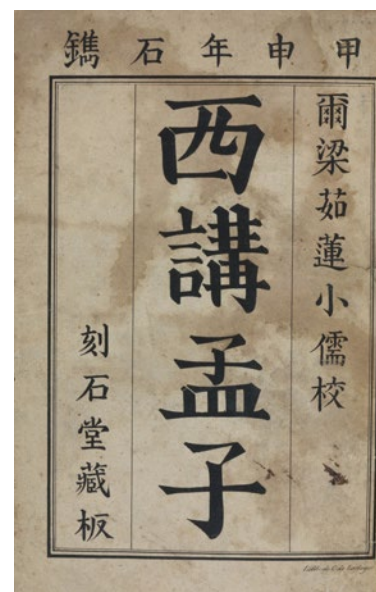 甲申年石鐫
爾梁茹蓮小儒校
西講孟子
刻石堂藏板